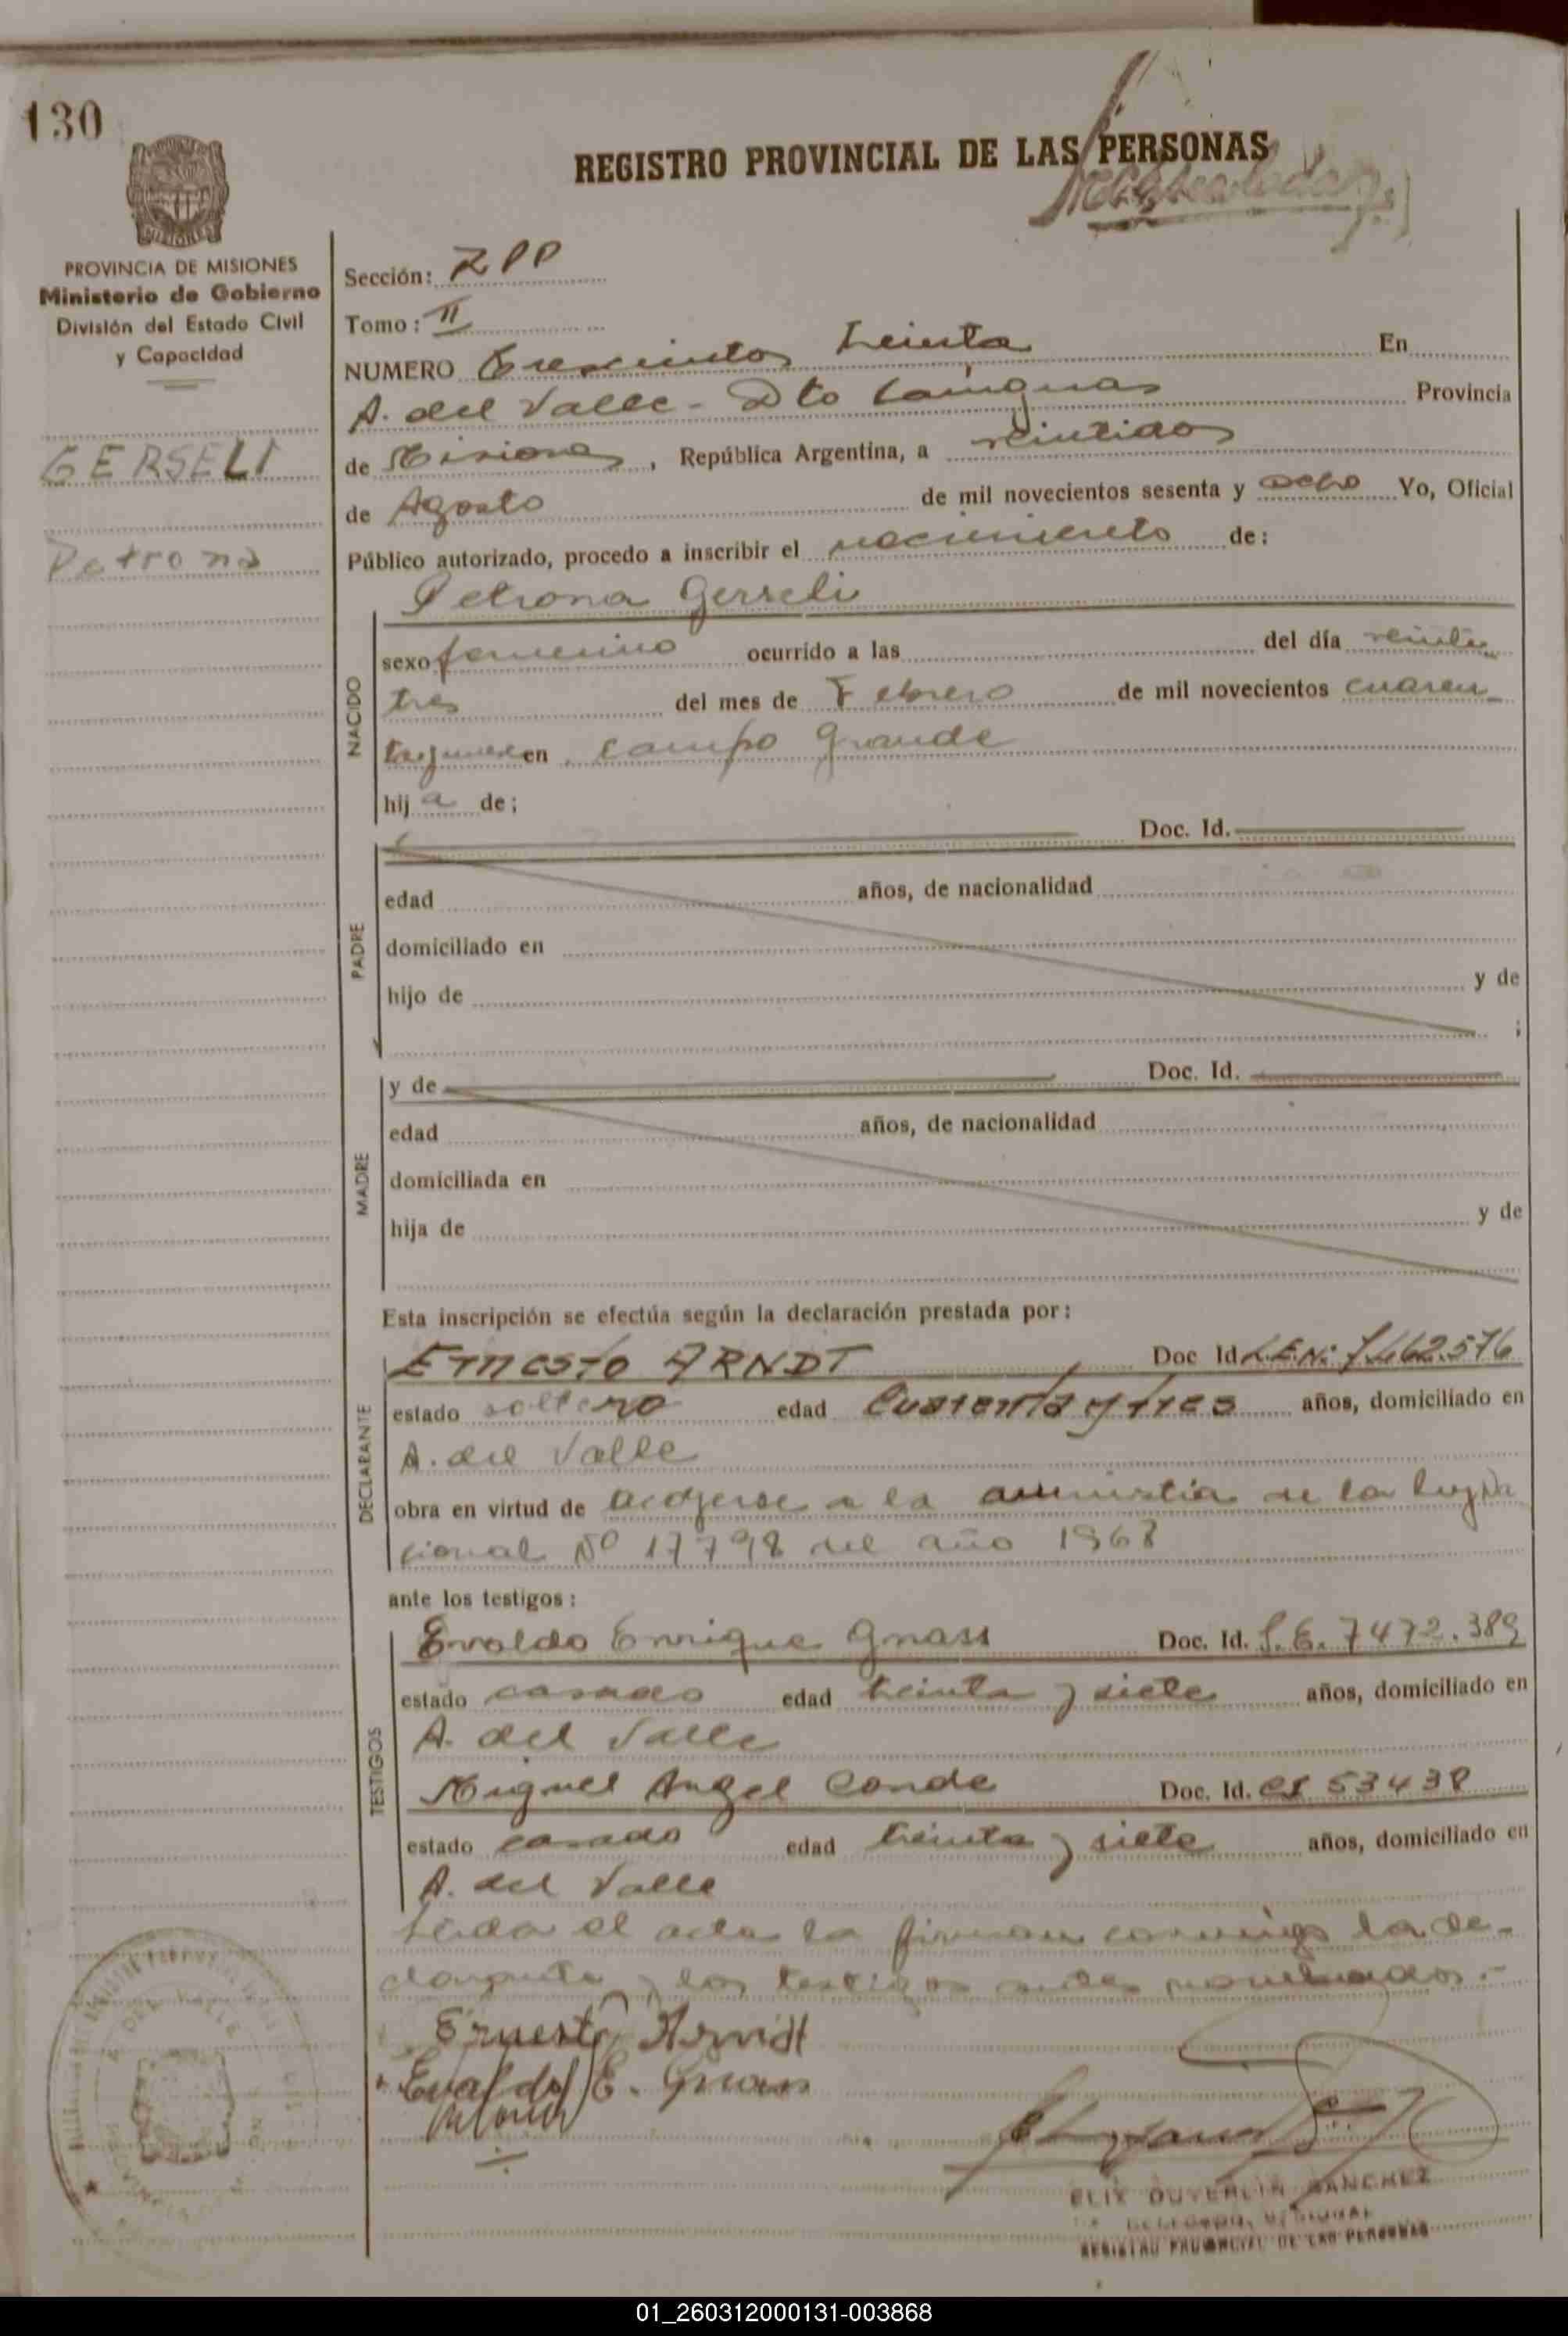 130
REGISTRO PROVINCIAL DE LAS PERSONAS
MISIONES
PROVINCIA DE MISIONES
Ministerio de Gobierno
División del Estado Civil
y Capacidad
GERSELI
Petrona
Sección:
Tomo: II
NUMERO Trescientos treinta En
A. del Valle - Dto Cainguas Provincia
de Misiones, República Argentina, a veintidos
de Agosto de mil novecientos sesenta y ocho Yo, Oficial
Público autorizado, procedo a inscribir el nacimiento de:
Petrona Gerseli
NACIDO
sexo femenino ocurrido a las del día veinti
tres del mes de Febrero de mil novecientos cuaren
en campo grande
hij a de;
PADRE
Doc. Id.
edad años, de nacionalidad
domiciliado en
hijo de y de
;
MADRE
y de Doc. Id.
edad años, de nacionalidad
domiciliada en
hija de y de
Esta inscripción se efectúa según la declaración prestada por:
DECLARANTE
Ernesto ARNDT Doc Id L.E.N: 7.462.576
estado soltero edad Cuarenta y tres años, domiciliado en
A. del Valle
obra en virtud de acogerse a la amnistia de la ley
cional Nº 17798 del año 1968
ante los testigos:
TESTIGOS
Evaldo Enrique Gnass Doc. Id. L.E. 7472.389
estado casado edad treinta y siete años, domiciliado en
A. del Valle
Miguel Angel Conde Doc. Id. CI 53438
estado casado edad treinta y siete años, domiciliado en
A. del Valle
Leida el acta la firman conmigo la de-
clarante y los testigos antes nombrados.-
Ernesto Arndt
Evaldo E. Gnass
SANCHEZ
REGISTRO PROVINCIAL DE LAS PERSONAS
01_260312000131-003868